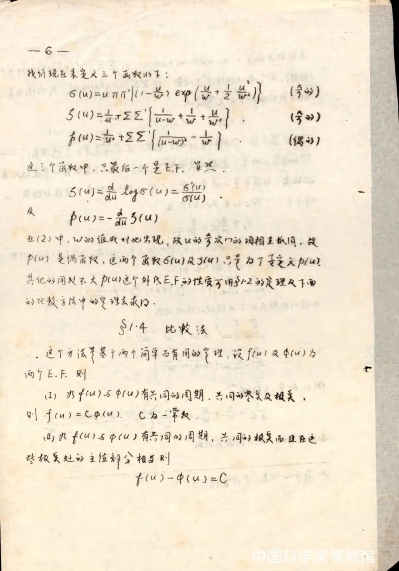 —6—
我们现在来定义三个函数如下:
σ(u)=uΠΠ'{(1-u/w) exp(u/w+1/2 u²/w²)} (奇的)
ζ(u)=1/u+ΣΣ'{1/(u-w)+1/w+u/w²}. (奇的)
p(u)=1/u²+ΣΣ'{1/(u-w)²-1/w²}. (偶的)
这三个函数中,只最后一个是E.F. 显然.
ζ(u)=d/du logσ(u)=σ'(u)/σ(u).
及 p(u)=-d/du ζ(u)
在(2)中,w的值成对地出现,故u的奇次的项相互抵消,故
p(u)是偶函数,这两个函数σ(u)及ζ(u)只是为了要定义p(u)
其他的用处不大p(u)这个外氏E.F的性质可用§1·2的定理及下面
的比较方法中的定理去求得.
§1·4 比较法
这个方法是基于两个简单而有用的定理,设f(u)及φ(u)为
两个E.F. 则
(1) 如f(u)与φ(u)有共同的周期,共同的零点及极点,
则f(u)=Cφ(u). C为一常数.
(2) 如f(u)与φ(u)有共同的周期,共同的极点而且在这
些极点处的主值部分相等则
f(u)-φ(u)=C
中国科学家博物馆